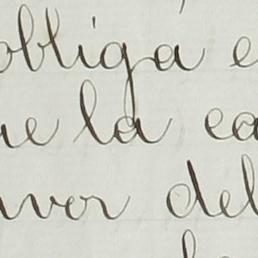 obliga e
ue la ca
avor del